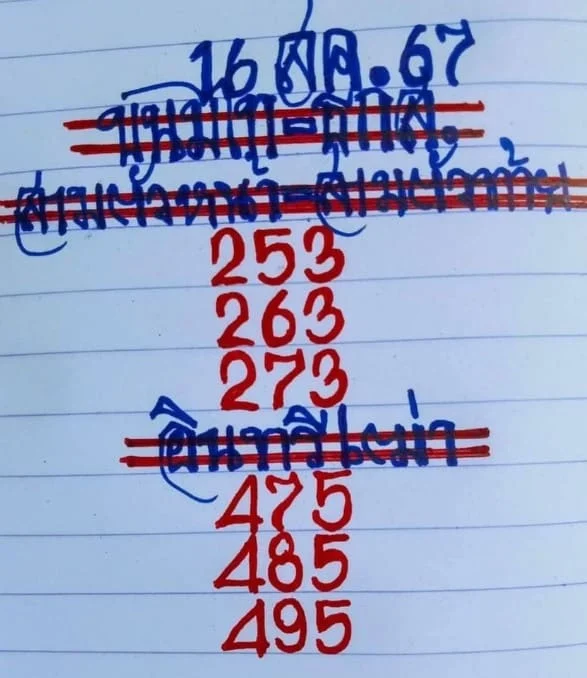 16 สค.67
สามตัวหน้า-สามตัวท้าย
253
263
273
อินทรีเหม่า
475
485
495